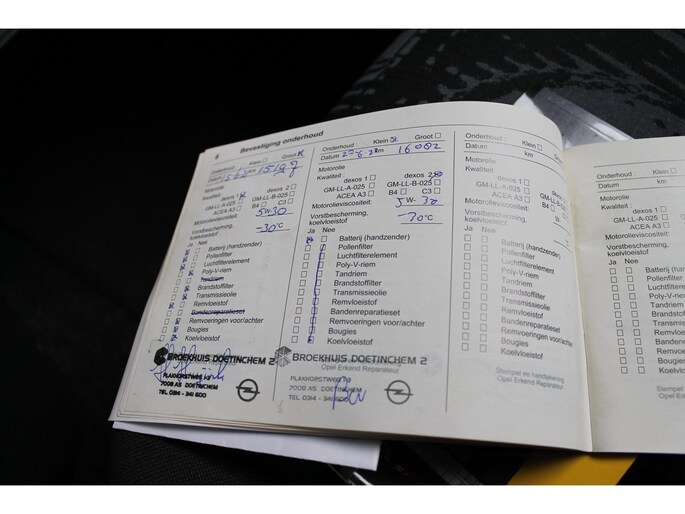 8 Bevestiging onderhoud
Onderhoud: Klein Groot
Datum
Motorolie
Kwaliteit dexos 1 dexos 2
GM-LL-A-025 GM-LL-B-025
ACEA A3 B4 C3
Motorolieviscositeit: 5W-30
Vorstbescherming,
koelvloeistof -30°C
Ja Nee
Batterij (handzender)
Pollenfilter
Luchtfilterelement
Poly-V-riem
Tandriem
Brandstoffilter
Transmissieolie
Remvloeistof
Bandenreparatieset
Remvoeringen voor/achter
Bougies
Koelvloeistof
BROEKHUIS DOETINCHEM 2
PLAKHORSTWEG 13
7008 AS DOETINCHEM
TEL. 0314 - 341 600
Onderhoud: Klein Groot
Datum km 16002
Motorolie
Kwaliteit dexos 1 dexos 2
GM-LL-A-025 GM-LL-B-025
ACEA A3 B4 C3
Motorolieviscositeit: 5W-30
Vorstbescherming,
koelvloeistof -30°C
Ja Nee
Batterij (handzender)
Pollenfilter
Luchtfilterelement
Poly-V-riem
Tandriem
Brandstoffilter
Transmissieolie
Remvloeistof
Bandenreparatieset
Remvoeringen voor/achter
Bougies
Koelvloeistof
BROEKHUIS DOETINCHEM 2
Opel Erkend Reparateur
PLAKHORSTWEG 13
7008 AS DOETINCHEM
TEL. 0314 - 341 600
Onderhoud: Klein Groot
Datum km
Motorolie
Kwaliteit dexos 1
GM-LL-A-025
ACEA A3 B4
Motorolieviscositeit:
Vorstbescherming,
koelvloeistof
Ja Nee
Batterij (handzender)
Pollenfilter
Luchtfilterelement
Poly-V-riem
Tandriem
Brandstoffilter
Transmissieolie
Remvloeistof
Bandenreparatieset
Remvoeringen voor/achter
Bougies
Koelvloeistof
Stempel en handtekening
Opel Erkend Reparateur
Onderhoud: Klein
Datum
Motorolie
Kwaliteit dexos 1
GM-LL-A-025
ACEA A3
Motorolieviscositeit:
Vorstbescherming,
koelvloeistof
Ja Nee